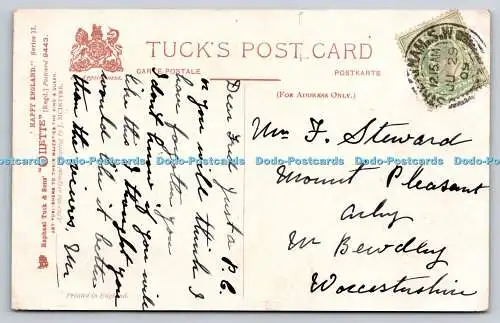 TUCK'S POST CARD
CARTE POSTALE
POSTKARTE
(FOR ADDRESS ONLY.)
Appointment.
" HAPPY ENGLAND." Series II.
Raphael Tuck & Sons' "OILETTE" [Regd.] Postcard 9443.
ART PUBLISHERS TO THEIR MAJESTIES THE KING & QUEEN.
Printed in England.
Dear Fred Just a P.C.
or you will think I
have forgotten you
don't know if you will
like this I thought you
would like it better
than the views,
F. Steward
Mount Pleasant
Arley
Nr Bewdley
Worcestershire
Dodo-Postcards Dodo-Postcards Dodo-Postcards Dodo-Postcards Dodo-Postcards